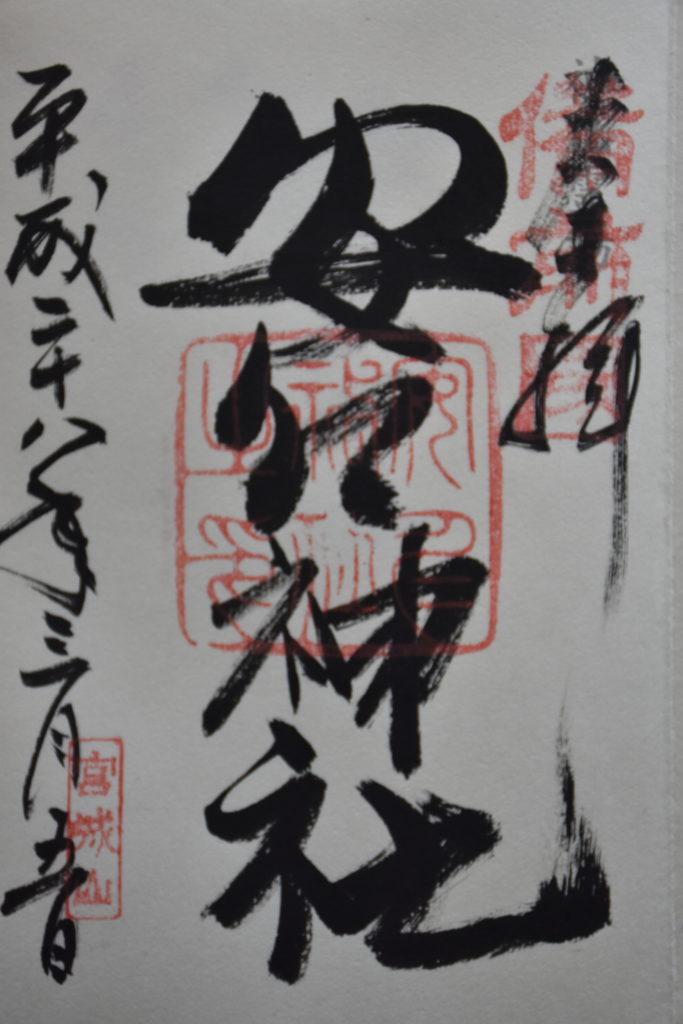 奉拝
備前國
安仁神社
平成二十八年三月五日
宮城山